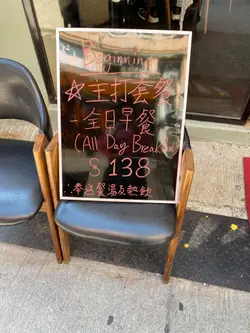 Beginning
☆主打套餐
-全日早餐
(All Day Breakfast)
$138
奉送餐湯及熱飲